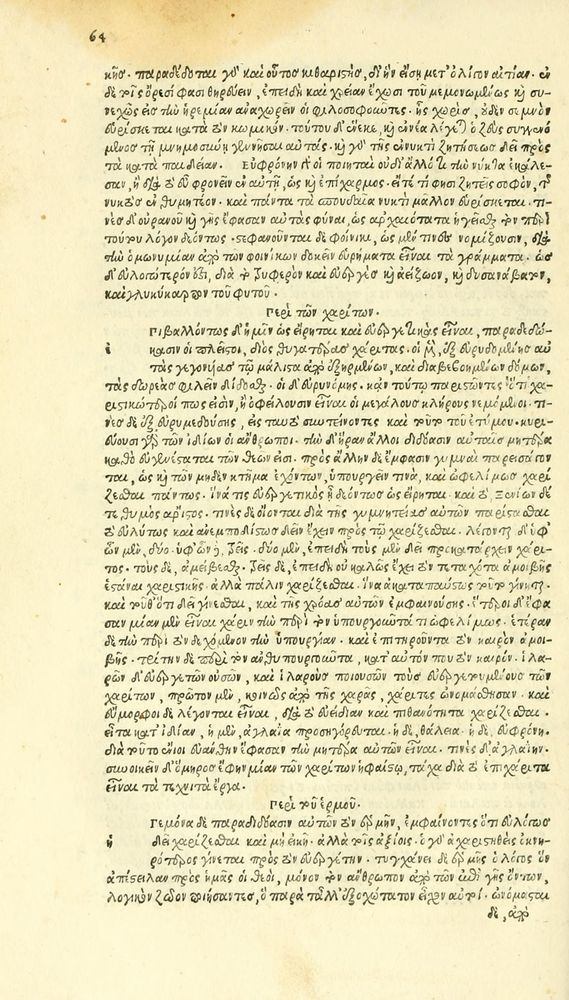 64
κῆσ. παραδέδοται γὸ καὶ οὗτος κιθαριστὴς, δι' ἣν εἴσῃ μετ' ὀλίγον αἰτίαν. ἐν
δὲ τοῖς ὄρεσί φασι θηρεύειν, ἐπειδὴ καὶ χρείαν ἔχουσι τοῦ μεμονωμένως καὶ συ
νεχῶς εἰς τὴν ἠρεμίαν ἀναχωρεῖν οἱ φιλοσοφοῦντες. ἧς χωρὶς, οὐδὲν σεμνὸν
εὑρίσκεται κατὰ τὸν κωμικόν. τούτου δ' ἕνεκε, καὶ ἐννέα λέγεται ὁ ζεὺς συγγενό
μενος τῇ μνημοσύνῃ γεννῆσαι αὐτάς. καὶ γὰρ τῆς ἐν νυκτὶ ζητήσεως δεῖ πρὸς
τὰ κατὰ παιδείαν. Εὐφρόνην γὰρ οἱ ποιηταὶ οὐ δι' ἄλλό τι τὴν νύκτα ἐκάλε
σαν, ἢ διὰ τὸ εὖ φρονεῖν ἐν αὐτῇ, ὡς καὶ ἐπίχαρμος. εἴτέ τί φησι ζητεῖς σοφὸν, τῆς
νυκτὸς ἐνθυμητέον. καὶ πάντα τὰ σπουδαῖα νυκτὶ μᾶλλον εὑρίσκεται. τι
νὲς δ' οὐρανοῦ καὶ γῆς ἔφασαν αὐτὰς φῦναι, ὡς ἀρχαιότατα ἡγεῖσθαι τὸν περὶ
τούτου λόγον δέοντος. στεφανοῦνται δὲ φοίνικι, ὡς μέν τινες νομίζουσιν, διὰ
τὴν ὁμωνυμίαν ἀπὸ τῶν φοινίκων δοκεῖν εὑρήματα εἶναι τὰ γράμματα. ὡς
δ' εὐλογώτερόν ἐστι, διὰ τὸ τρυφερὸν καὶ εὐερνὲς καὶ ἀείζωον, καὶ δυσανάβατον,
καὶ γλυκύκαρπον τοῦ φυτοῦ.
Περὶ τῶν χαρίτων.
Πιβαλλόντως δ' ἡμῖν ὡς εἴρηται καὶ εὐεργετικὰς εἶναι, παραδεδώ
ἐ κασιν οἱ πλεῖστοι, διὸς θυγατέρας χάριτας. οἱ μὲν, ἐξ εὐρυδομένης αὐ
τὰς γεγονῆας τῷ μάλιστα ἀπὸ ἐξῃρμένων, καὶ διαβεβοημένων δόμων,
τὰς δωρεὰς φιλεῖν δίδοσθαι. οἱ δ' εὐρυνόμης. κᾂν τούτῳ παριστῶντες ὅτι χα
ριστικώτεροί πως εἰσὶν, ἢ ὀφείλουσιν εἶναι οἱ μεγάλους κλήρους νεμόμενοι. τι
νὲς δ' ἐξ εὐρυμεδούσης, εἰς ταυτὸ συντείνοντες καὶ τοῦτο τοῦ ἐτύμου. κυρι
εύουσι γὰρ τῶν ἰδίων οἱ ἄνθρωποι. τὴν δ' ἥραν ἄλλοι διδόασιν αὐταῖς μητέρα
καθὸ εὐγενέσταται τῶν θεῶν εἰσι. πρὸς ἄλλην δὲ ἔμφασιν γυμναὶ παρεισάγον
ται, ὡς καὶ τῶν μηδὲν κτῆμα ἐχόντων, ὑπουργεῖν τινὰ, καὶ ὠφελίμως χαρί
ζεσθαι πάντως. ἵνα τις εὐεργετικὸς ᾖ δεόντως ὡς εἴρηται. καὶ τὸ, ξενίων δέ
τε θυμὸς ἄριστος. τινὲς δὲ οἴονται διὰ τῆς γυμνητείας αὐτῶν παρίστασθαι
τὸ εὐλύτως καὶ ἀνεμποδίστως δεῖν ἔχειν πρὸς τὸ χαρίζεσθαι. λέγονται δ' ὑφ'
ὧν μὲν, δύο. ὑφ' ὧν δὲ, τρεῖς. δύο μὲν, ἐπειδὴ τοὺς μὲν δεῖ προκατάρχειν χάρι
τος. τοὺς δὲ, ἀμείβεσθαι. τρεῖς δὲ, ἐπειδὴ οὐ καλῶς ἔχει τὸν τετυχότα ἀμοιβῆς
ἑστάναι χαριστικῆς. ἀλλὰ πάλιν χαρίζεσθαι. ἵνα ἀκαταπαύστως τοῦτο γίνηται.
καὶ τοῦθ' ὅτι δεῖ γίνεσθαι, καὶ τῆς χρόας αὐτῶν ἐμφαινούσης. ἕτεροι δ' ἔφα
σαν μίαν μὲν εἶναι χάριν τὴν περὶ τὸν ὑπουργοῦντά τι ὠφελίμως. ἑτέραν
δὲ τὴν περὶ τὸν δεχόμενον τὴν ὑπουργίαν. καὶ ἐπιτηροῦντα τὸν καιρὸν ἀμοι
βῆς. τρίτην δὲ περὶ τὸν ἀνθυπουργοῦντα, κατ' αὐτόν που τὸν καιρόν. ἱλα
ρῶν δ' εὐεργετῶν οὐσῶν, καὶ ἱλαροὺς ποιουσῶν τοὺς εὐεργετουμένους τῶν
χαρίτων, πρῶτον μὲν, κοινῶς ἀπὸ τῆς χαρᾶς, χάριτες ὠνομάσθησαν. καὶ
εὔμορφοι δὲ λέγονται εἶναι, διὰ τὸ εὐειδίαν καὶ πιθανότητα χαρίζεσθαι.
εἶτα κατ' ἰδίαν, ἡ μὲν, ἀγλαία προσηγόρευται. ἡ δὲ, θάλεια. ἡ δὲ, εὐφρόνη.
διὰ τοῦτο ἔνιοι εὐάνθην ἔφασαν τὴν μητέρα αὐτῶν εἶναι. τινὲς δ' ἀγλαΐην.
συνοικεῖν δ' ὅμηρος ἔφη μίαν τῶν χαρίτων ἡφαίστῳ, τάχα διὰ τὸ ἐπιχάριτα
εἶναι τὰ τεχνιτὰ ἔργα.
Περὶ τοῦ ἑρμοῦ.
Γεμόνα δὲ παραδιδόασιν αὐτῶν τὸν ἑρμῆν, ἐμφαίνοντες ὅτι εὐλόγως
ἡ δεῖ χαρίζεσθαι καὶ μὴ εἰκῇ. ἀλλὰ τοῖς ἀξίοις. ὁ γὸ ἀχαριστηθεὶς ὀκνη
ρότερος γίνεται πρὸς τὸ εὐεργετεῖν. τυγχάνει δὲ ἑρμῆς ὁ λόγος ὃν
ἀπέστειλαν πρὸς ἡμᾶς οἱ θεοὶ, μόνον τὸν ἄνθρωπον ἀπὸ τῶν ἐπὶ γῆς ὄντων,
λογικὸν ζῶον ποιήσαντες, ὃ παρὰ τἆλλ' ἐξοχώτατον εἶχον αὐτοί. ὠνόμασται
δὲ, ἀπὸ